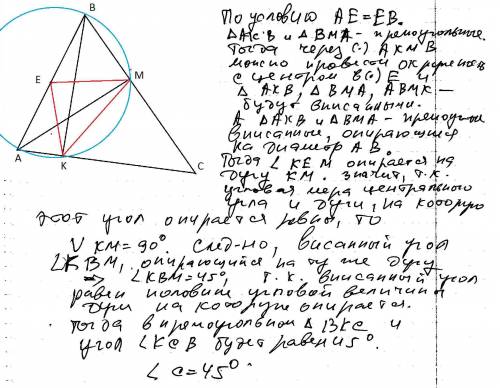 B
E
M
A
K
C
По условию AE=EB.
ΔAKB и ΔBMA - прямоугольные.
Тогда через (·) AKMB
можно провести окружность
с центром в (·) E и
ΔAKB, ΔBMA, ΔBMK -
будут вписанными.
А ΔAKB и ΔBMA - прямоугол
вписанные, опирающиеся
на диаметр AB.
Тогда ∠KEM опирается на
дугу KM. значит, т.к.
угловая мера центрального
угла и дуги, на которую
этот угол опирается равны, то
∪KM=90° след-но, вписанный угол
∠KBM, опирающийся на ту же дугу
⇒ ∠KBM=45°, т.к. вписанный угол
равен половине угловой величины
дуги на которую опирается.
Тогда в прямоугольном ΔBKC и
угол ∠KCB будет равен 45°.
∠C=45°